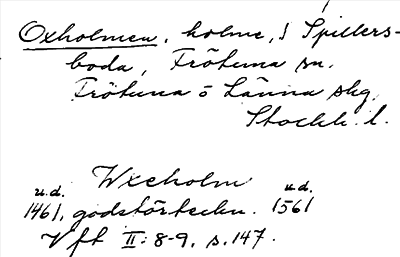 Oxholmen, holme, i Spillers-
boda, Frötuna sn.
Frötuna o Länna skg.
Stockh. l.
Wxeholm
u.d. u.d.
1461, godsförteckn. 1561
Vft II: 8-9, s. 147.